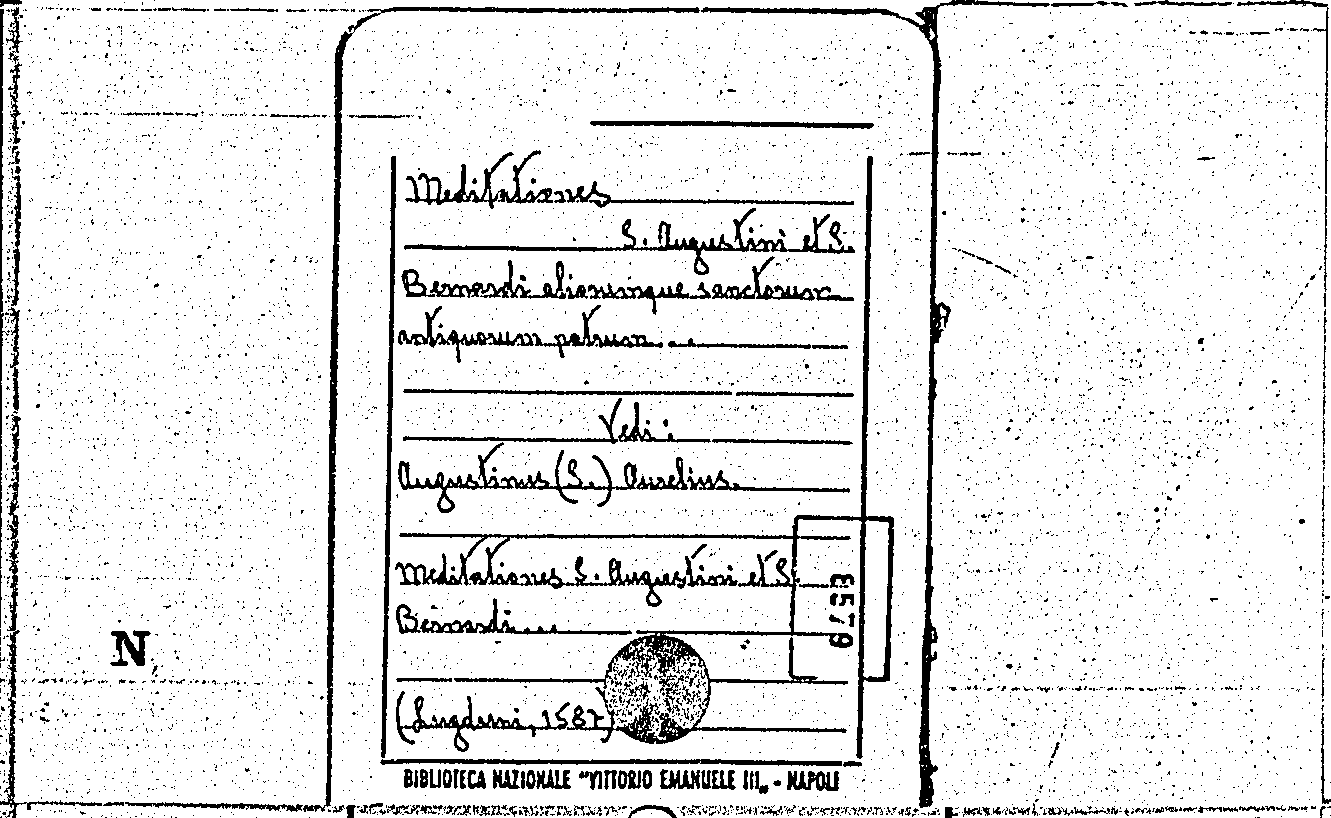 Meditationes
S. Augustini et S.
Bernardi aliorumque sanctorum
antiquorum patrum...
Vedi:
Augustinus (S.) Aurelius.
Meditationes S. Augustini et S.
Bernardi...
(Lugduni, 1587)
E579
N
BIBLIOTECA NAZIONALE "VITTORIO EMANUELE III„ - NAPOLI